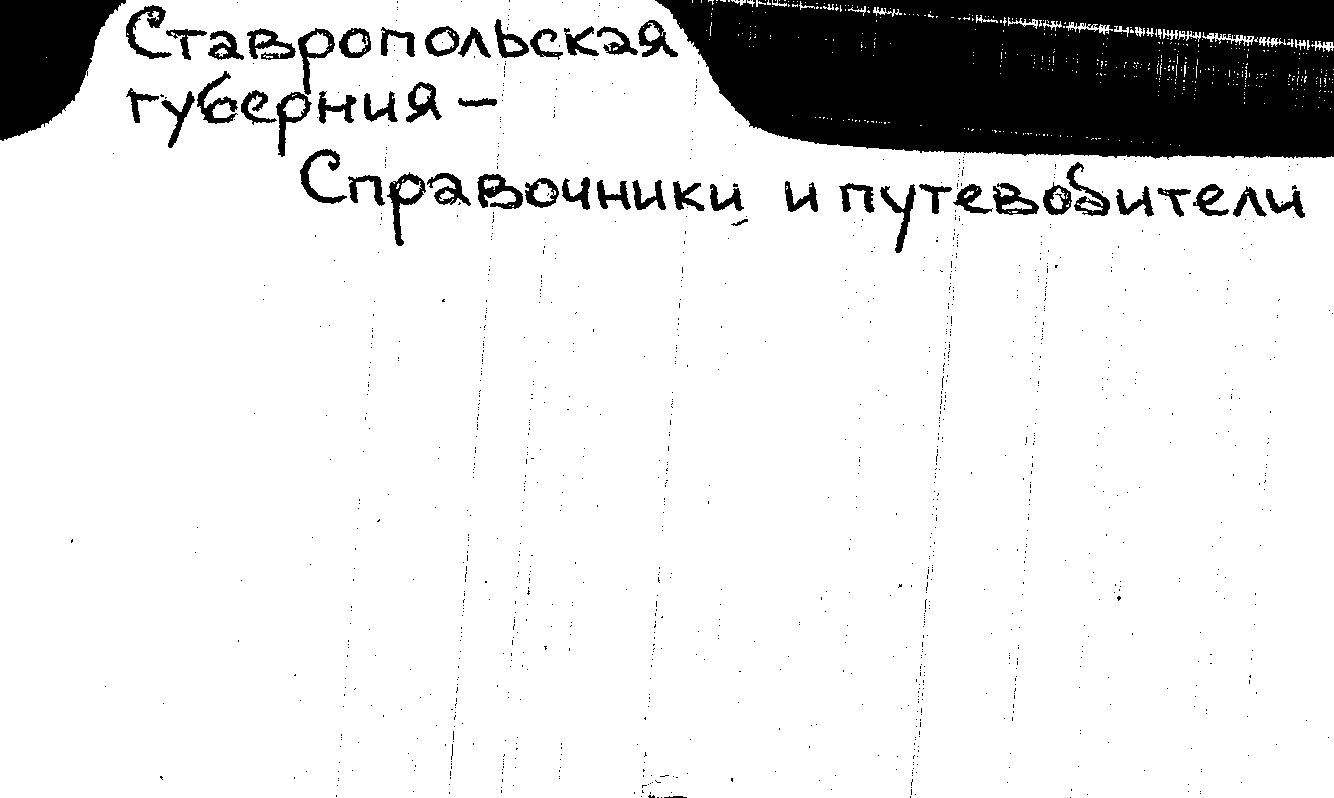 Ставропольская
губерния –
Справочники и путеводители